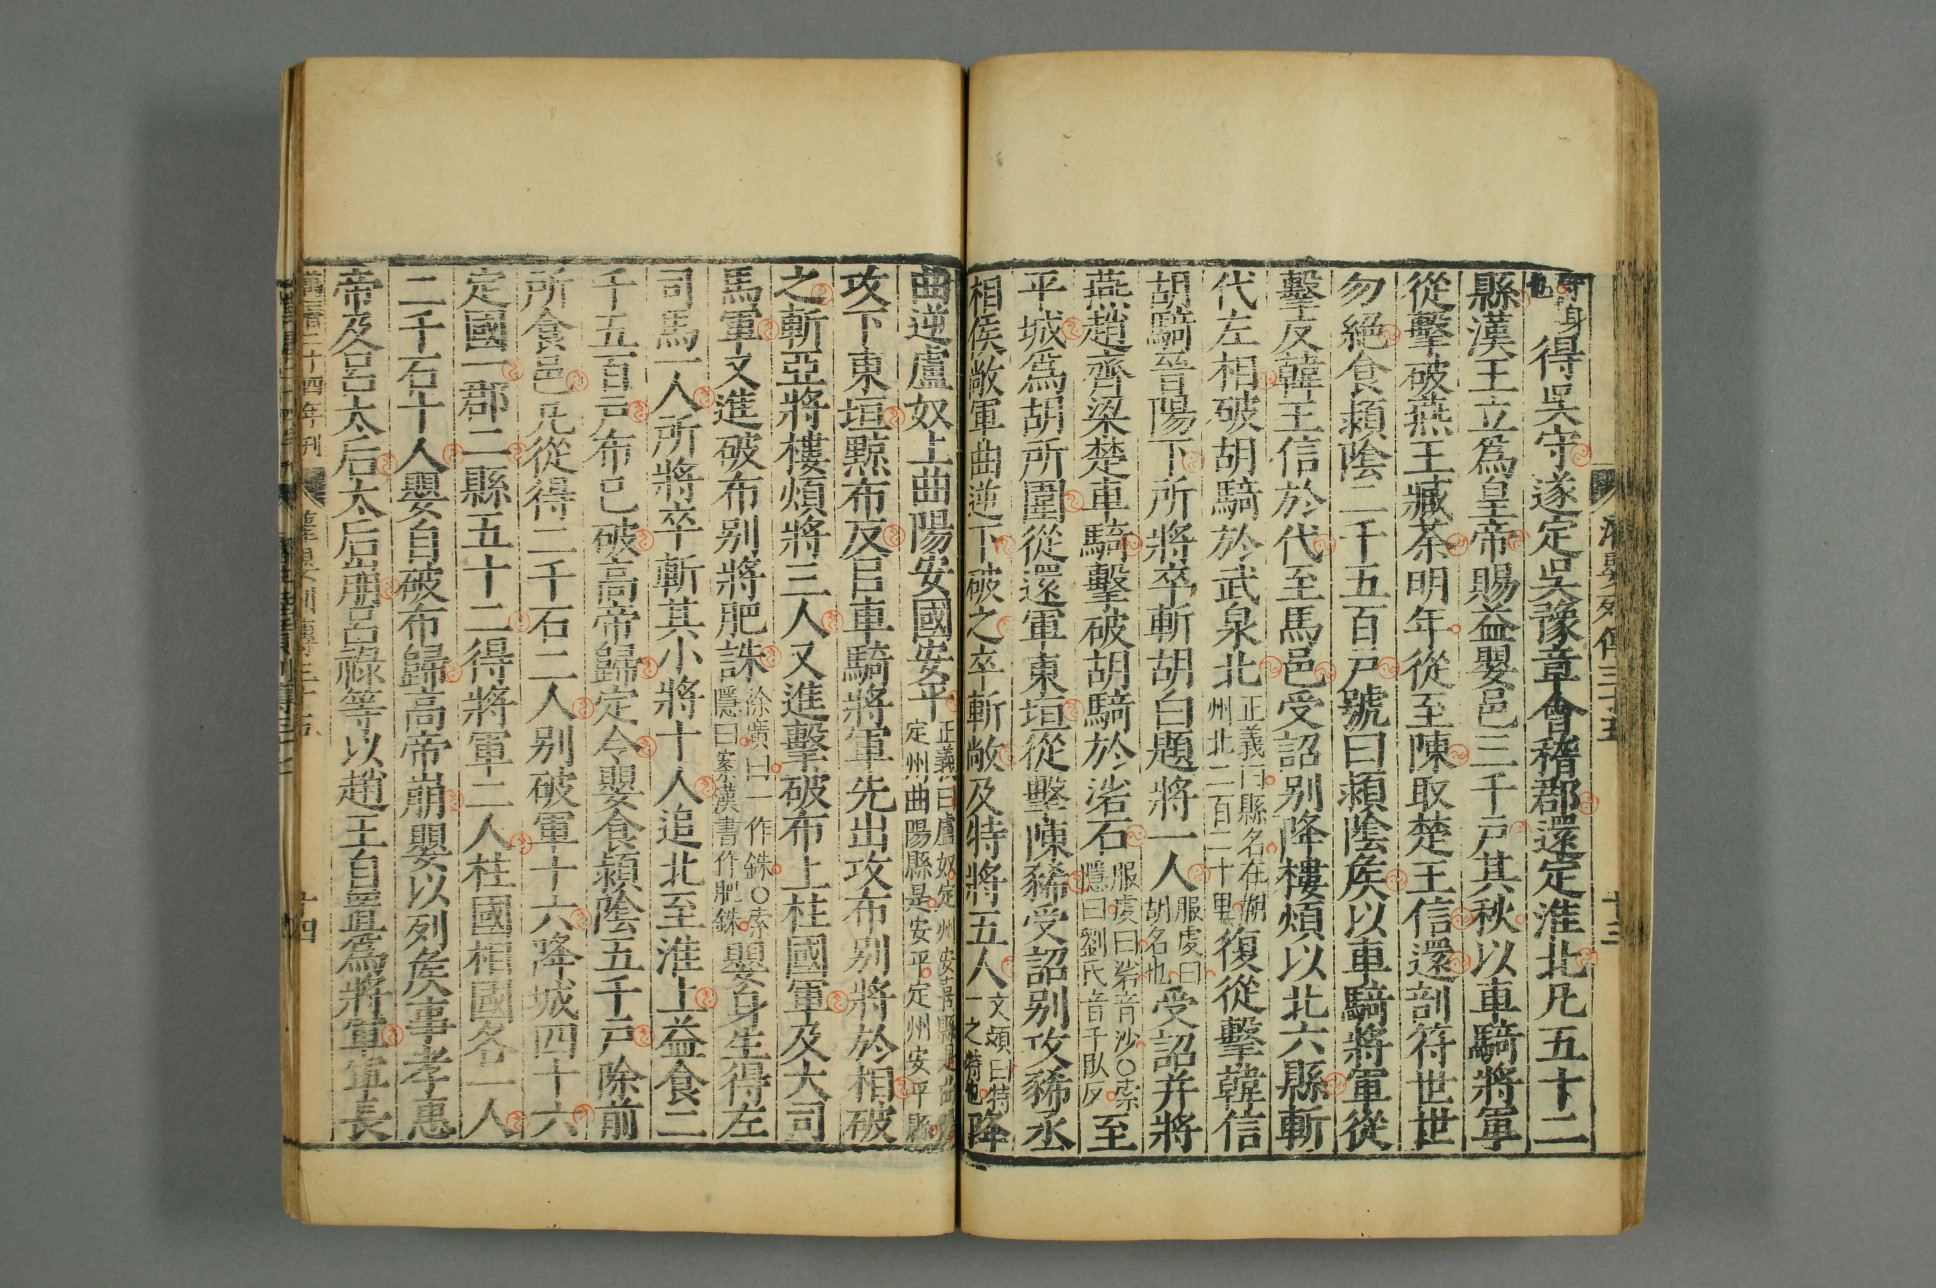 身也得吳守遂定吳豫章會稽郡還定淮北凡五十二
縣漢王立爲皇帝賜益嬰邑三千戸其秋以車騎將軍
從擊破燕王臧荼明年從至陳取楚王信還剖符世世
勿絕食潁陰二千五百戸號曰潁陰矦以車騎將軍從
擊反韓王信於代至馬邑受詔别降樓煩以北六縣斬
代左相破胡騎於武泉北正義曰縣名在朔州北二百二十里復從擊韓信
胡騎晉陽下所將卒斬胡白題將一人服虔曰胡名也受詔并將
燕趙齊梁楚車騎擊破胡騎於硰石服虔曰硰音沙○索隱曰劉氏音千臥反至
平城爲胡所圍從還軍東垣從擊陳豨受詔别攻豨丞
相侯敞軍曲逆下破之卒斬敞及特將五人文頴曰特一之特也降
曲逆盧奴上曲陽安國安平正義曰盧奴定州安喜縣是曲陽定州曲陽縣是安平定州安平縣
攻下東垣黥布反㠯車騎將軍先出攻布别將於相破
之斬亞將樓煩將三人又進擊破布上柱國軍及大司
馬軍又進破布别將肥誅徐廣曰一作銖○索隱曰案漢書作肥銖嬰身生得左
司馬一人所將卒斬其小將十人追北至淮上益食二
千五百戸布已破高帝歸定令嬰食潁陰五千戸除前
所食邑凡從得二千石二人别破軍十六降城四十六
定國一郡二縣五十二得將軍二人柱國相國各一人
二千石十人嬰自破布歸高帝崩嬰以列矦事孝惠
帝及呂太后太后崩呂祿等以趙王自置爲將軍軍長
十四